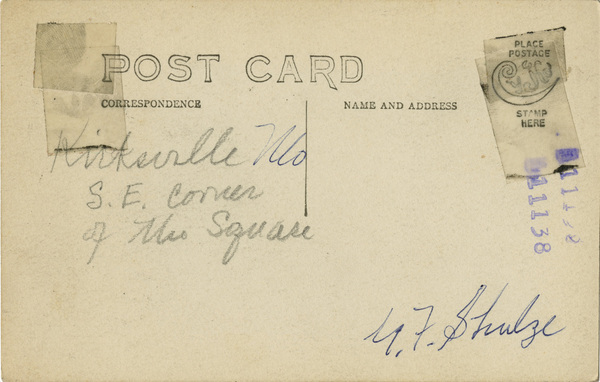 POST CARD
CORRESPONDENCE
NAME AND ADDRESS
PLACE
POSTAGE
STAMP
HERE
Kirksville Mo
S.E. Corner
of the Square
11138
Shulze